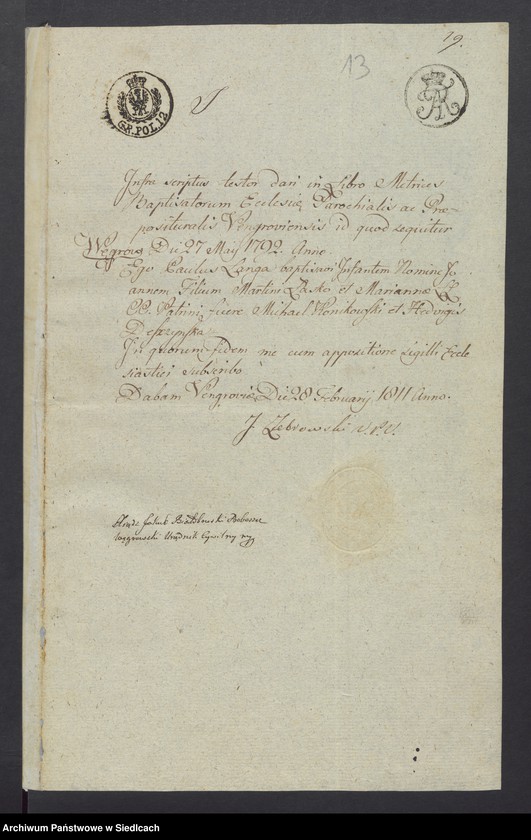 19.
13
GR.POL.12
Infra scriptus testor dari in Libro Metrices
Baptisatorum Ecclesiæ Parochialis ac Præ-
posituralis Vengroviensis id quod sequitur
Węgrow Die 27 Maij 1792 Anno
Ego Paulus Langa baptisavi Infantem Nomine Jo
annem Filium Martini Łasko et Mariannæ
Patrini fuere Michael Konikowski et Hedvigis
In quorum fidem me cum appositione Sigilli Eccle
siastici subscribo
Dabam Vengroviæ Die 28 Februarij 1811 Anno.
J. Zebrowski
Xiądz Jakub Proboszcz
węgrowski Urzędnik Cywilny
Archiwum Państwowe w Siedlcach